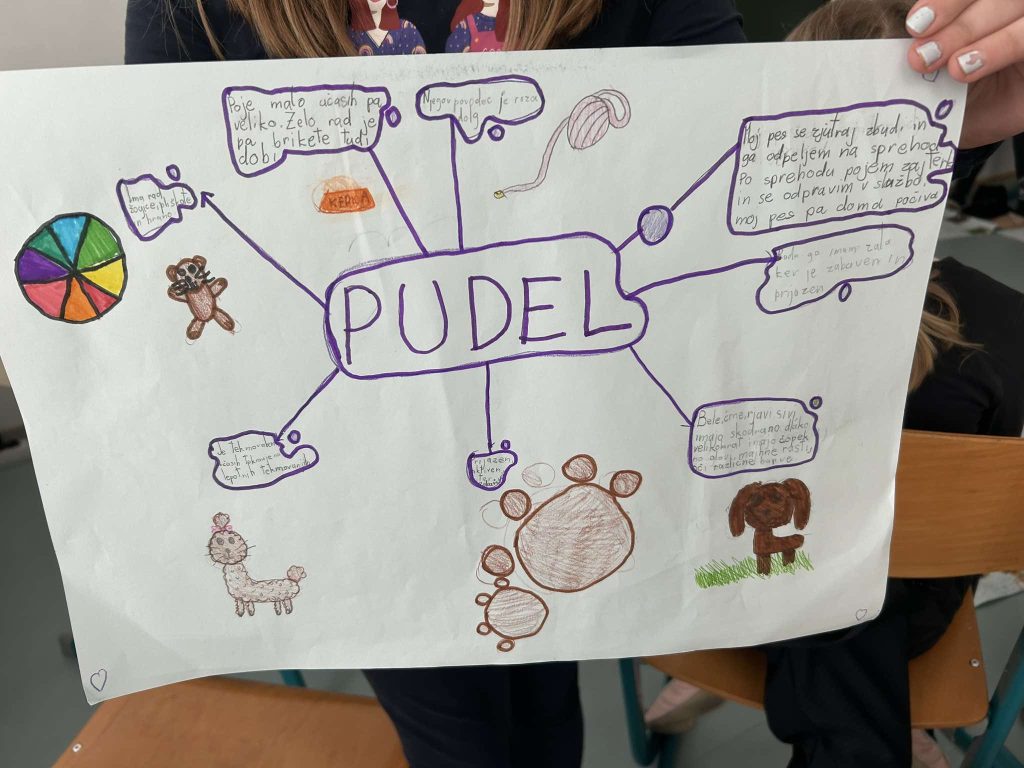 Poje malo včasih pa
veliko. Zelo rad je
pa brikete tudi
dobi
Njegov povodec je roza
dolg
Moj pes se zjutraj zbudi in
ga odpeljem na sprehod
Po sprehodu pojem zajterk
in se odpravim v službo,
moj pes pa doma počiva
Ima rad
žogice, piškote
n hrano
KERHA
rada ga imam zala
ker je zabaven in
prijazen
PUDEL
Bele, črne, rjavi sivi
imajo skodrano dlako
velikokrat imajo čopek
na glavi, majhne rastejo
različne barve
Je tekmovalen
včasih
lepotnih tekmovanjih
prijazen
aktiven